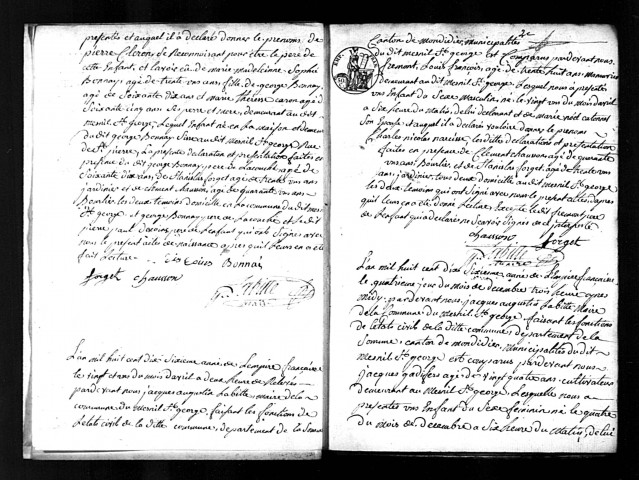 presentés et auquel il à declaré donner les prenoms de
pierre de Reconnoissant pour être le pere de
cette Enfant, et l'avoir Eû de marie madeleinne Sophie
Bonnay, agé de trente un ans fille, de george Bonnay,
agé de Soixante dix ans et marie therese caron agé de
Soixante cinq ans Ses pere et mere, demeurant au dit
mesnil St. george Lequel Enfant né en La maison et demeure
du dit george Bonnay Situé au dit mesnil St. george Rue
de St. pierre, La presente declaration et presentation faites en
presence de george Bonnay pere de agé de
Soixante dix ans, de Stanislas forget agé de trente un ans
jardinier et de clement chausson, agé de quarante un ans
Boulier les deux temoins domicillé en La commune du dit mesnil
St. george et george Bonnay pere de La et Le dit
pierre pere de l'Enfant qui ont Signés avec
nous Le present acte de naissance après qu'il leurs en a été
fait Lecture Louis Bonnai
forget chausson
Labitte
maire
L'an mil huit cent dix Sixieme année de L'empire française
le vingt et un du mois d'avril a deux heure de Relevée
pardevant nous jacques augustin Labitte maire de la
commune du Mesnil St. george, faisant les fonctions de
L'etat civil de la ditte commune, departement de la Somme
2e
Canton de mondidier, municipalités
du dit mesnil St. george Est Comparus pardevant nous
fremont, Louis françois, agé de trente huit ans Manouvrier
demeurant au dit Mesnil St. george Lesquel nous a presentés
un Enfant du Sexe Masculin né le vingt un du mois d'avril
a Six heure du Matin, de lui declarant et de Marie noel calonnes
Son Epouse, et auquel il a declaré vouloir donner le prenom
Charles nicolas narcisse Lesdittes declarations et presentation
faites en presence de Clement chausson agé de quarante
un ans Boulier et de Stanislas forget, agé de trente un
ans jardinier tous deux domicillé au dit mesnil St. george
les deux temoins qui ont Signé avec nous le present acte après
qu'il Leurs en a été donné Lecture Le dit fremont pere
de L'enfant qui à declaré ne Savoir Signer de ce interpellé
chausson forget
Labitte
maire
L'an mil huit cent dix Sixieme année de L'Empire française
le quatrieme jour du mois de decembre trois heure après
midy, pardevant nous, jacques augustin Labitte Maire
de La Commune du Mesnil St. george, faisant les fonctions
de L'etats civil de la Ditte commune, departement de la
Somme, canton de mondidier, Municipalités du dit
mesnil St. george est comparus pardevant nous
jacques agé de vingt quatre ans, cultivateur
demeurant au Mesnil St. george, Lesquelles nous a
presentés un Enfant du Sexe feminin né le quatre
du Mois de decembre a Six heure du Matin, de lui